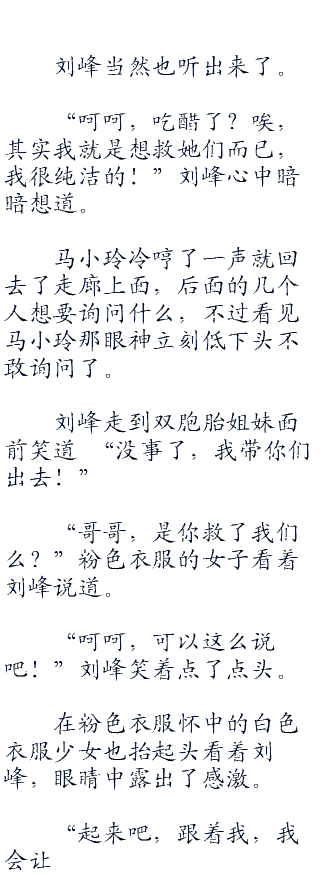 刘峰当然也听出来了。
“呵呵，吃醋了？唉，
其实我就是想救她们而已，
我很纯洁的！”刘峰心中暗
暗想道。
马小玲冷哼了一声就回
去了走廊上面，后面的几个
人想要询问什么，不过看见
马小玲那眼神立刻低下头不
敢询问了。
刘峰走到双胞胎姐妹面
前笑道 “没事了，我带你们
出去！”
“哥哥，是你救了我们
么？”粉色衣服的女子看着
刘峰说道。
“呵呵，可以这么说
吧！”刘峰笑着点了点头。
在粉色衣服怀中的白色
衣服少女也抬起头看着刘
峰，眼睛中露出了感激。
“起来吧，跟着我，我
会让